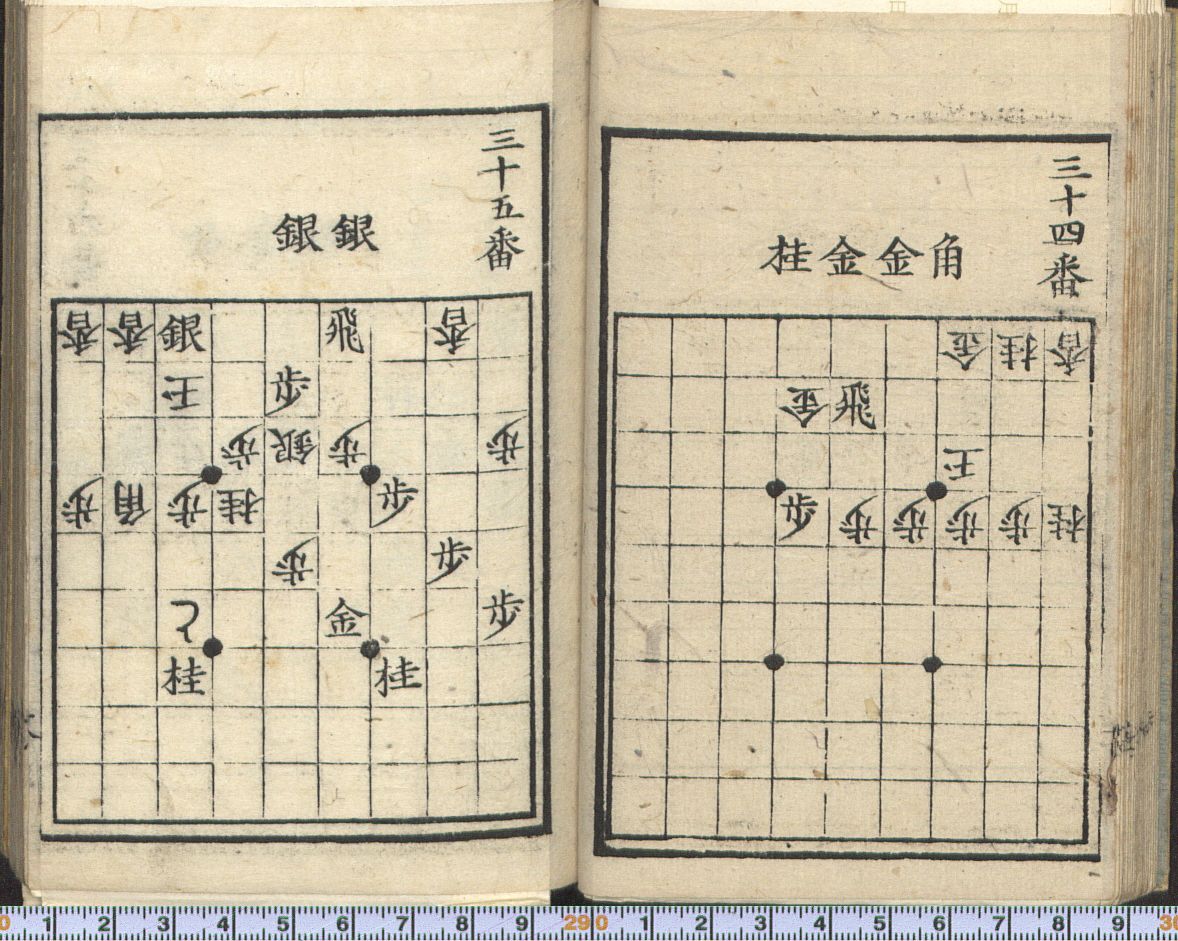 三十四番
角金金桂
香桂金
飛金
王
桂歩歩歩歩歩
三十五番
銀銀
香飛銀香香
歩王
歩歩銀歩
歩桂歩角歩
歩歩
歩金と
桂桂
0 1 2 3 4 5 6 7 8 9 29 0 1 2 3 4 5 6 7 8 9